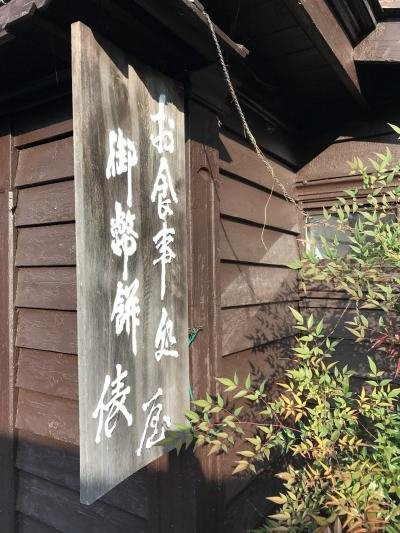 お食事処
御幣餅
俵屋